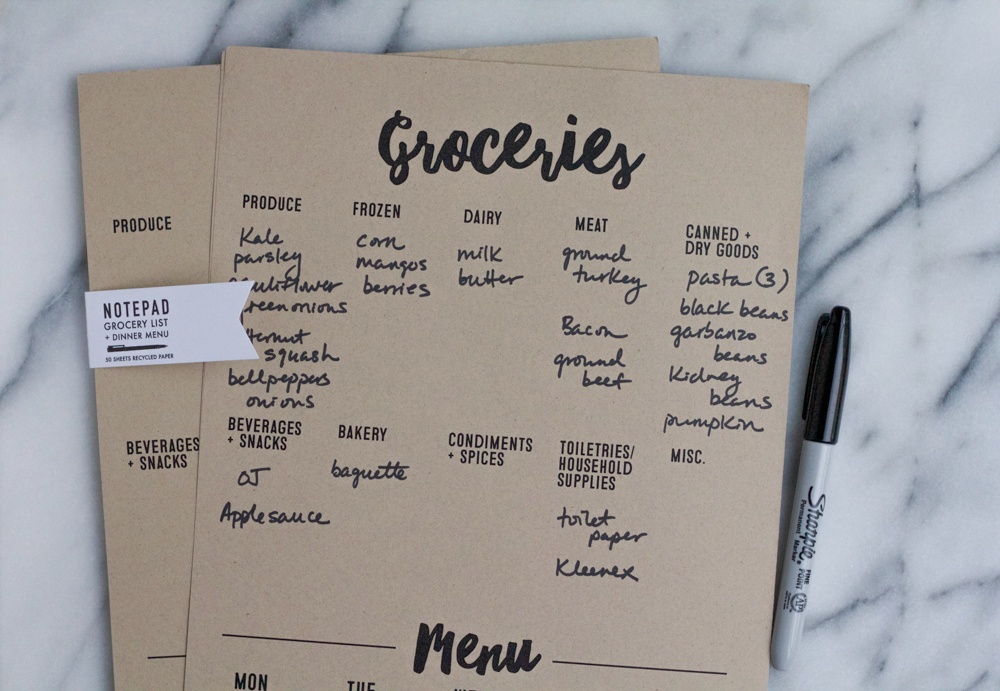 Groceries
PRODUCE
Kale
parsley
cauliflower
greenonions
squash
bellpeppers
onions
FROZEN
corn
mangos
berries
DAIRY
milk
butter
MEAT
ground
turkey
Bacon
ground
beef
CANNED +
DRY GOODS
pasta (3)
black beans
garbanzo
beans
Kidney
beans
pumpkin
BEVERAGES
+ SNACKS
OJ
Applesauce
BAKERY
baguette
CONDIMENTS
+ SPICES
TOILETRIES/
HOUSEHOLD
SUPPLIES
toilet
paper
Kleenex
MISC.
Menu
MON
TUE
PRODUCE
BEVERAGES
+ SNACKS
NOTEPAD
GROCERY LIST
+ DINNER MENU
50 SHEETS RECYCLED PAPER
Sharpie
Permanent Marker
FINE
POINT